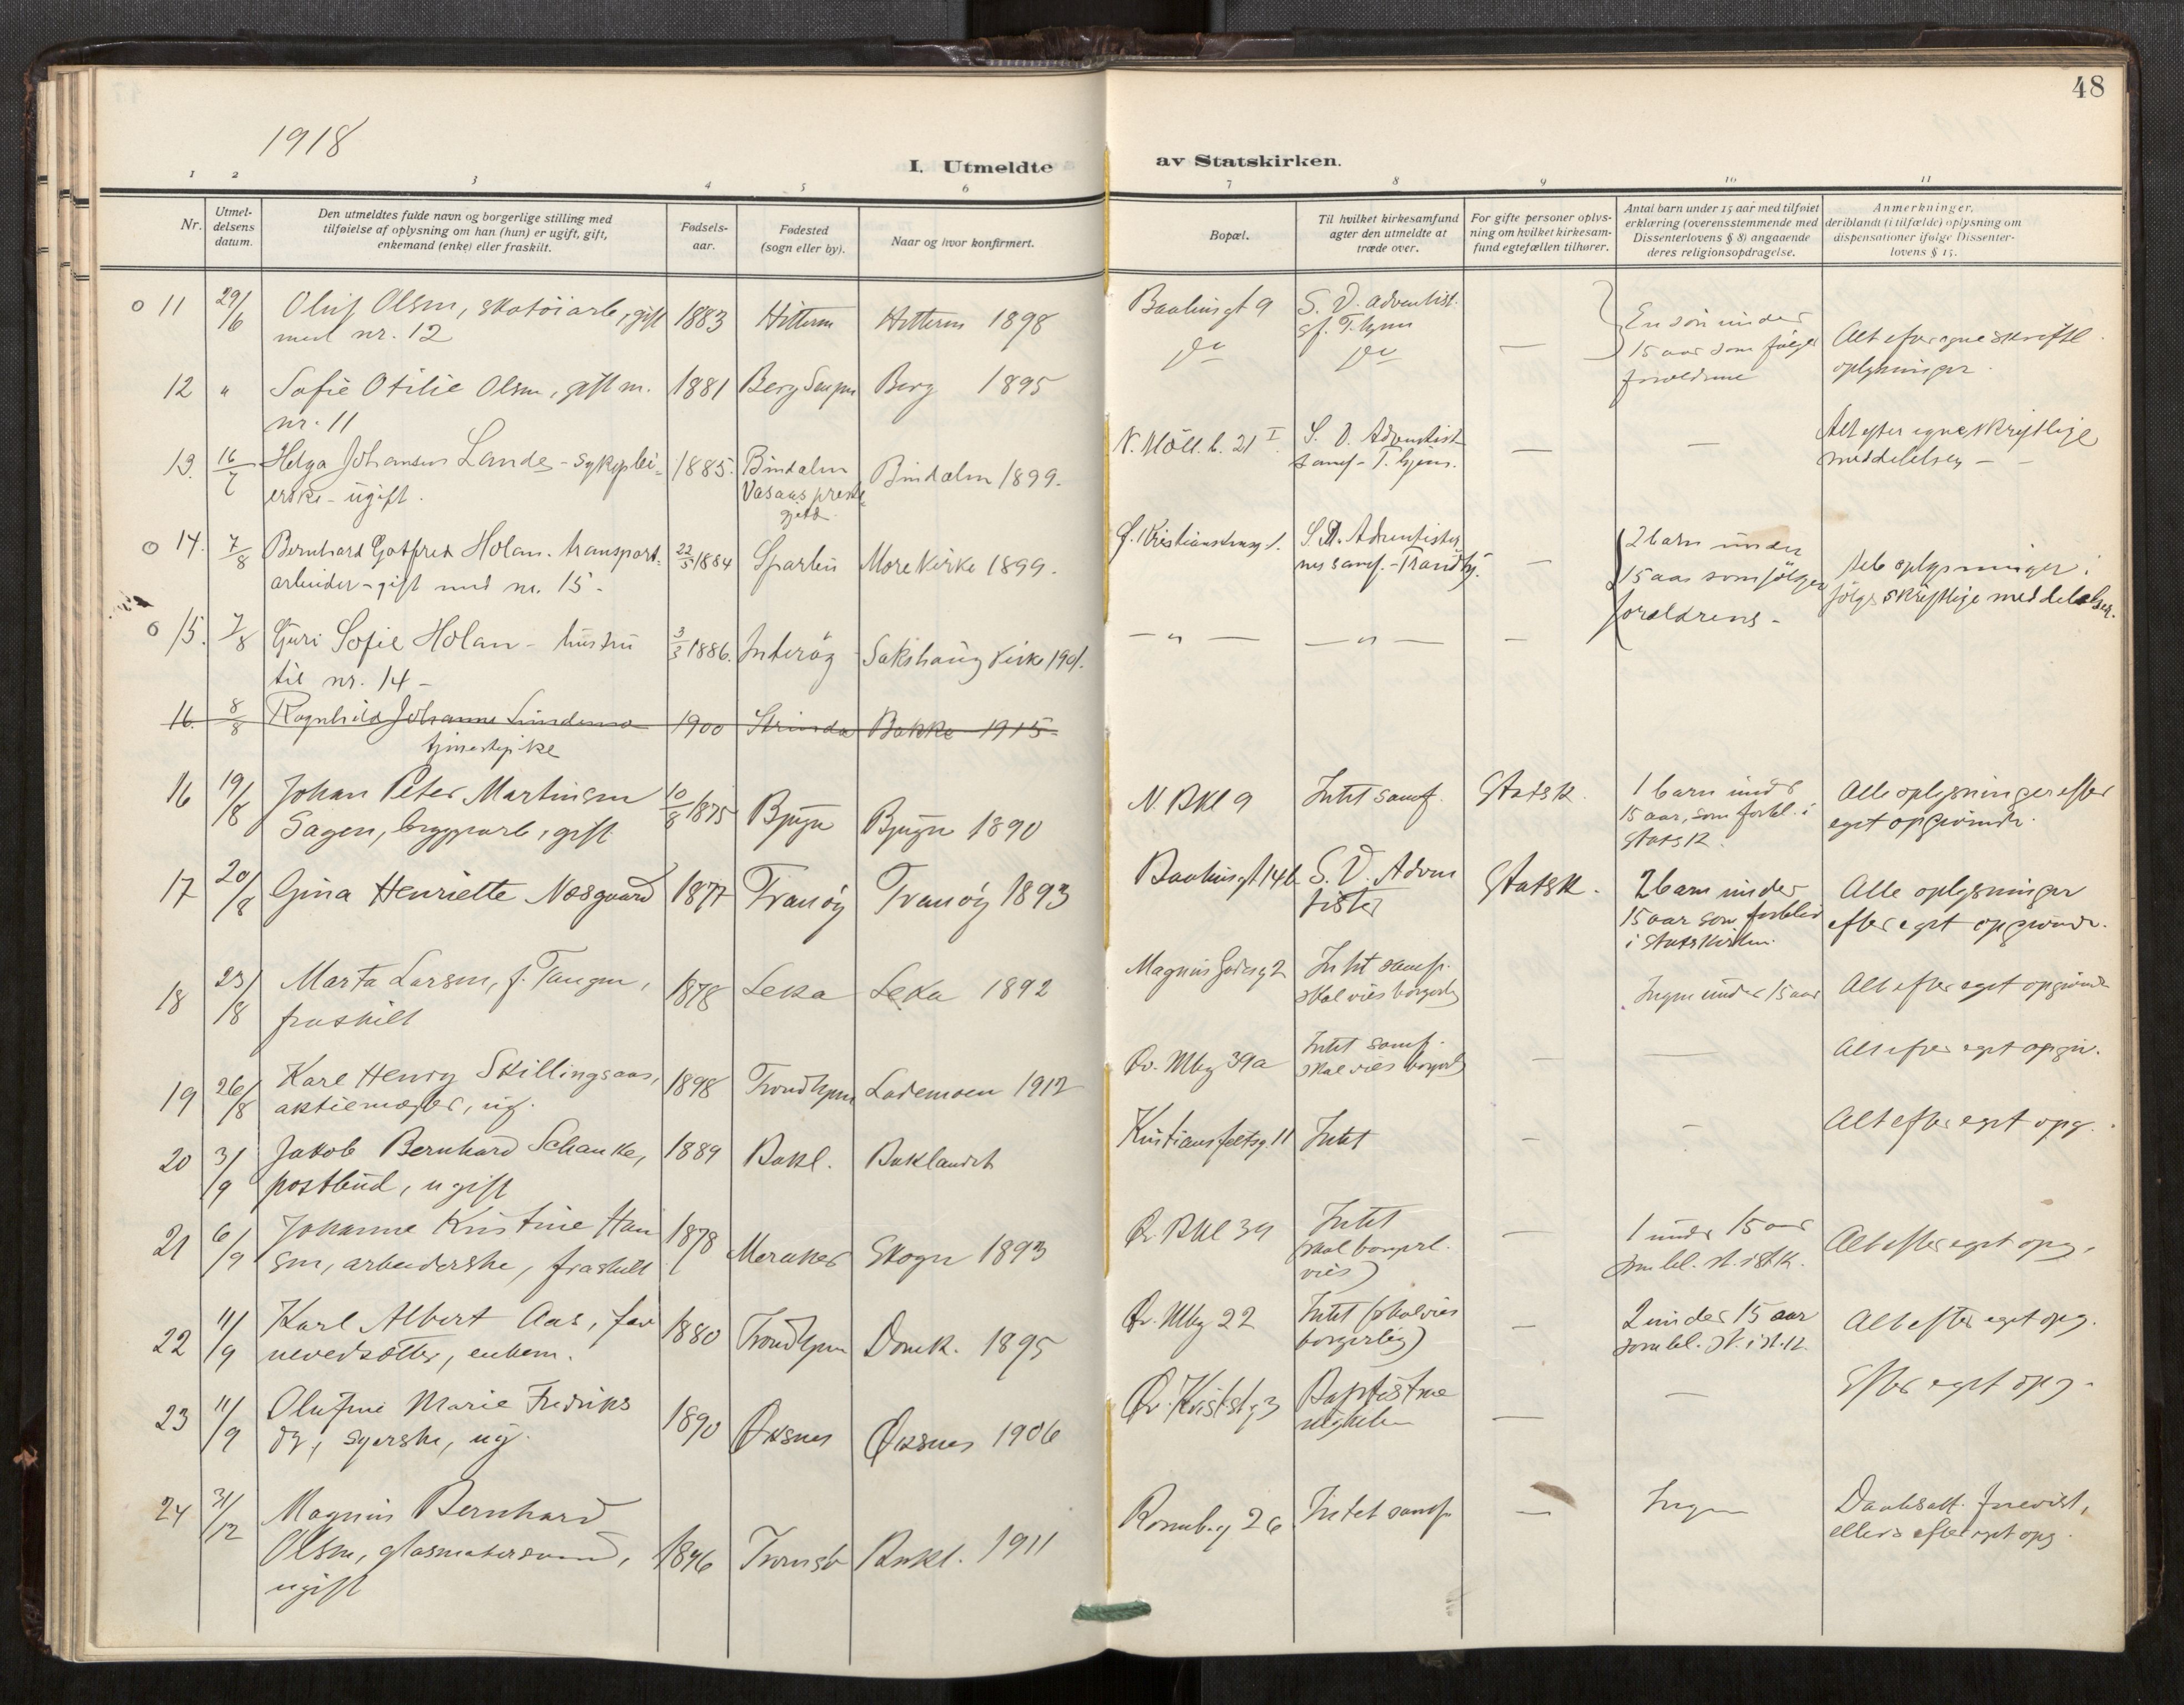 48
1918
I. Utmeldte av Statskirken.
1 2 3 4 5 6 7 8 9 10 11
Nr.
Utmel-
delsens
datum.
Den utmeldtes fulde navn og borgerlige stilling med
tilføielse af oplysning om han (hun) er ugift, gift,
enkemand (enke) eller fraskilt.
Fødsels-
aar.
Fødested
(sogn eller by).
Naar og hvor konfirmert.
Bopæl.
Til hvilket kirkesamfund
agter den utmeldte at
træde over.
For gifte personer oplys-
ning om hvilket kirkesam-
fund egtefællen tilhører.
Antal barn under 15 aar med tilføiet
erklæring (overensstemmende med
Dissenterlovens § 8) angaaende
deres religionsopdragelse.
Anmerkninger,
deriblandt (i tilfælde) oplysning om
dispensationer ifølge Dissenter-
lovens § 15.
o 11 29/6 Oluf Olsen, skotöiarb, gift 1883 Hitteren Hitteren 1898 Baahusgt 9 S. D. adventist.
med nr. 12
En sön under
15 aar som følger
forældrene
Alt efter egne skriftl.
oplysninger.
12 " Sofie Otilie Olsen, gift m. 1881 Berg Senjen Berg 1895
nr. 11
13. 16/7 Helga Johansen Lande - sykeplei- 1885. Bindalen Bindalen 1899. N. Möll. b. 21 I. S. D. Adventist
erske - ugift. Vasaas preste- samf - T. hjem. —
gjeld
Alt efter egne skriftlige
meddelelser —
o 14. 7/8 Bernhard Gotfred Holan. transport- 22/5 1884 Sparbu More kirke 1899. S. D. Adventister
arbeider - gift med nr. 15 - nes samf. - Trondhj. —
2 barn under
15 aar som følger
foreldrene -
Alle oplysninger i
følge skriftlige meddelelser.
o 15. 7/8 Guri Sofie Holan - hustru 3/3 1886. Inderöy Sakshaug kirke 1901. — " — — " — —
til nr. 14 -
16. 8/8 Ragnhild Johanne Lindemo 1900 Strinda Bakke 1915-
tjenestepike
16 19/8 Johan Peter Martinsen 10/8 1875 Bjugn Bjugn 1890 N. Bkl 9 Intet samf. Statsk. 1 barn under
Sagen, bryggearb, gift 15 aar, som forbl. i
statsk.
Alle oplysninger efter
eget opgivende.
17 20/8 Gina Henriette Næsgaard 1877 Tranöy Tranöy 1893 Baahusgt 14b S. D. Adven Statsk. 2 barn under
tister 15 aar som forbliv
i statskirken.
Alle oplysninger
efter eget opgivende.
18 23/8 Marta Larsen, f. Tangen, 1878 Leka Leka 1892 Magnus Godesg 2 Intet samf.
fraskilt skal vies borgerlig
Ingen under 15 aar Alt efter eget opgivende
19 26/8 Karl Henry Skillingsaas, 1898 Trondhjem Lademoen 1912 Öv. Mbg 39a Intet samf.
aktiemægler, ug. skal vies borgerl —
Alt efter eget opgiv.
20 3/9 Jakob Bernhard Schanke, 1889 Bakl. Baklandet Kristiansfeltsg. 11 Intet — - Alt efter eget opg.
postbud, ugift
21 6/9 Johanne Kristine Han 1878 Meraker Skogn 1893 Öv Bkl 39 Intet — 1 under 15 aar
sen, arbeiderske, fraskilt (skal borgerl.
vies)
som bl. st. i st.k.
Alt efter eget opg.
22 11/9 Karl Albert Aas, far 1880 Trondhjem Domk. 1895 Öv. Mbg 22 Intet (skal vies — 2 under 15 aar
borgerlig) som bl. st. i st.k.
Alt efter eget opg.
23 11/9 Olufine Marie Fredriks 1890 Øksnes Øksnes 1906 Baptistme
syerske, ug. nigheten — —
Efter eget opg.
24 31/12 Magnus Bernhard
Olsen, glasmestersvend, 1896 Tromsö Bakl. 1911 Rosenb.g 26 Intet samf. — Ingen
ugift
Daabsatt. forevist,
ellers efter eget opg.